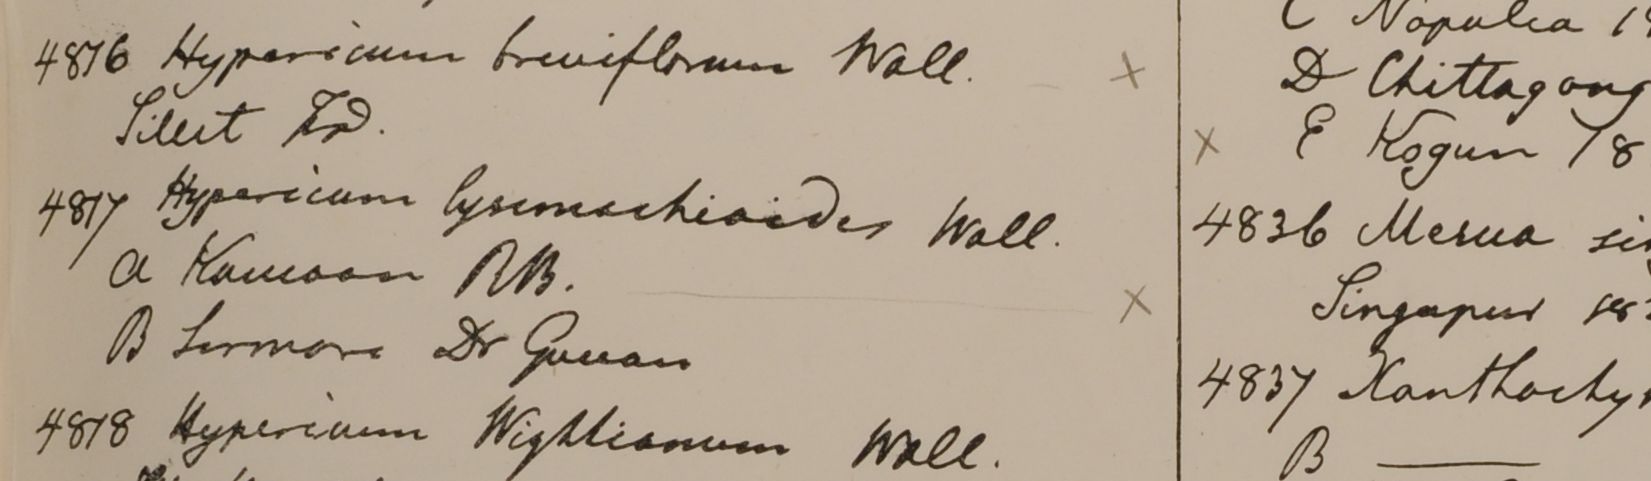 4816 Hypericum breviflorum Wall. ×
Sillet F.D.
4817 Hypericum lysimachioides Wall.
a Kamaon RB. ×
B Sirmore Dr Govan
4818 Hypericum Wightianum Wall.
C Nopalia 18
D Chittagong
× E Kogun 18
4836 Mesua
Singapur
4837 Xanthochy
B ———